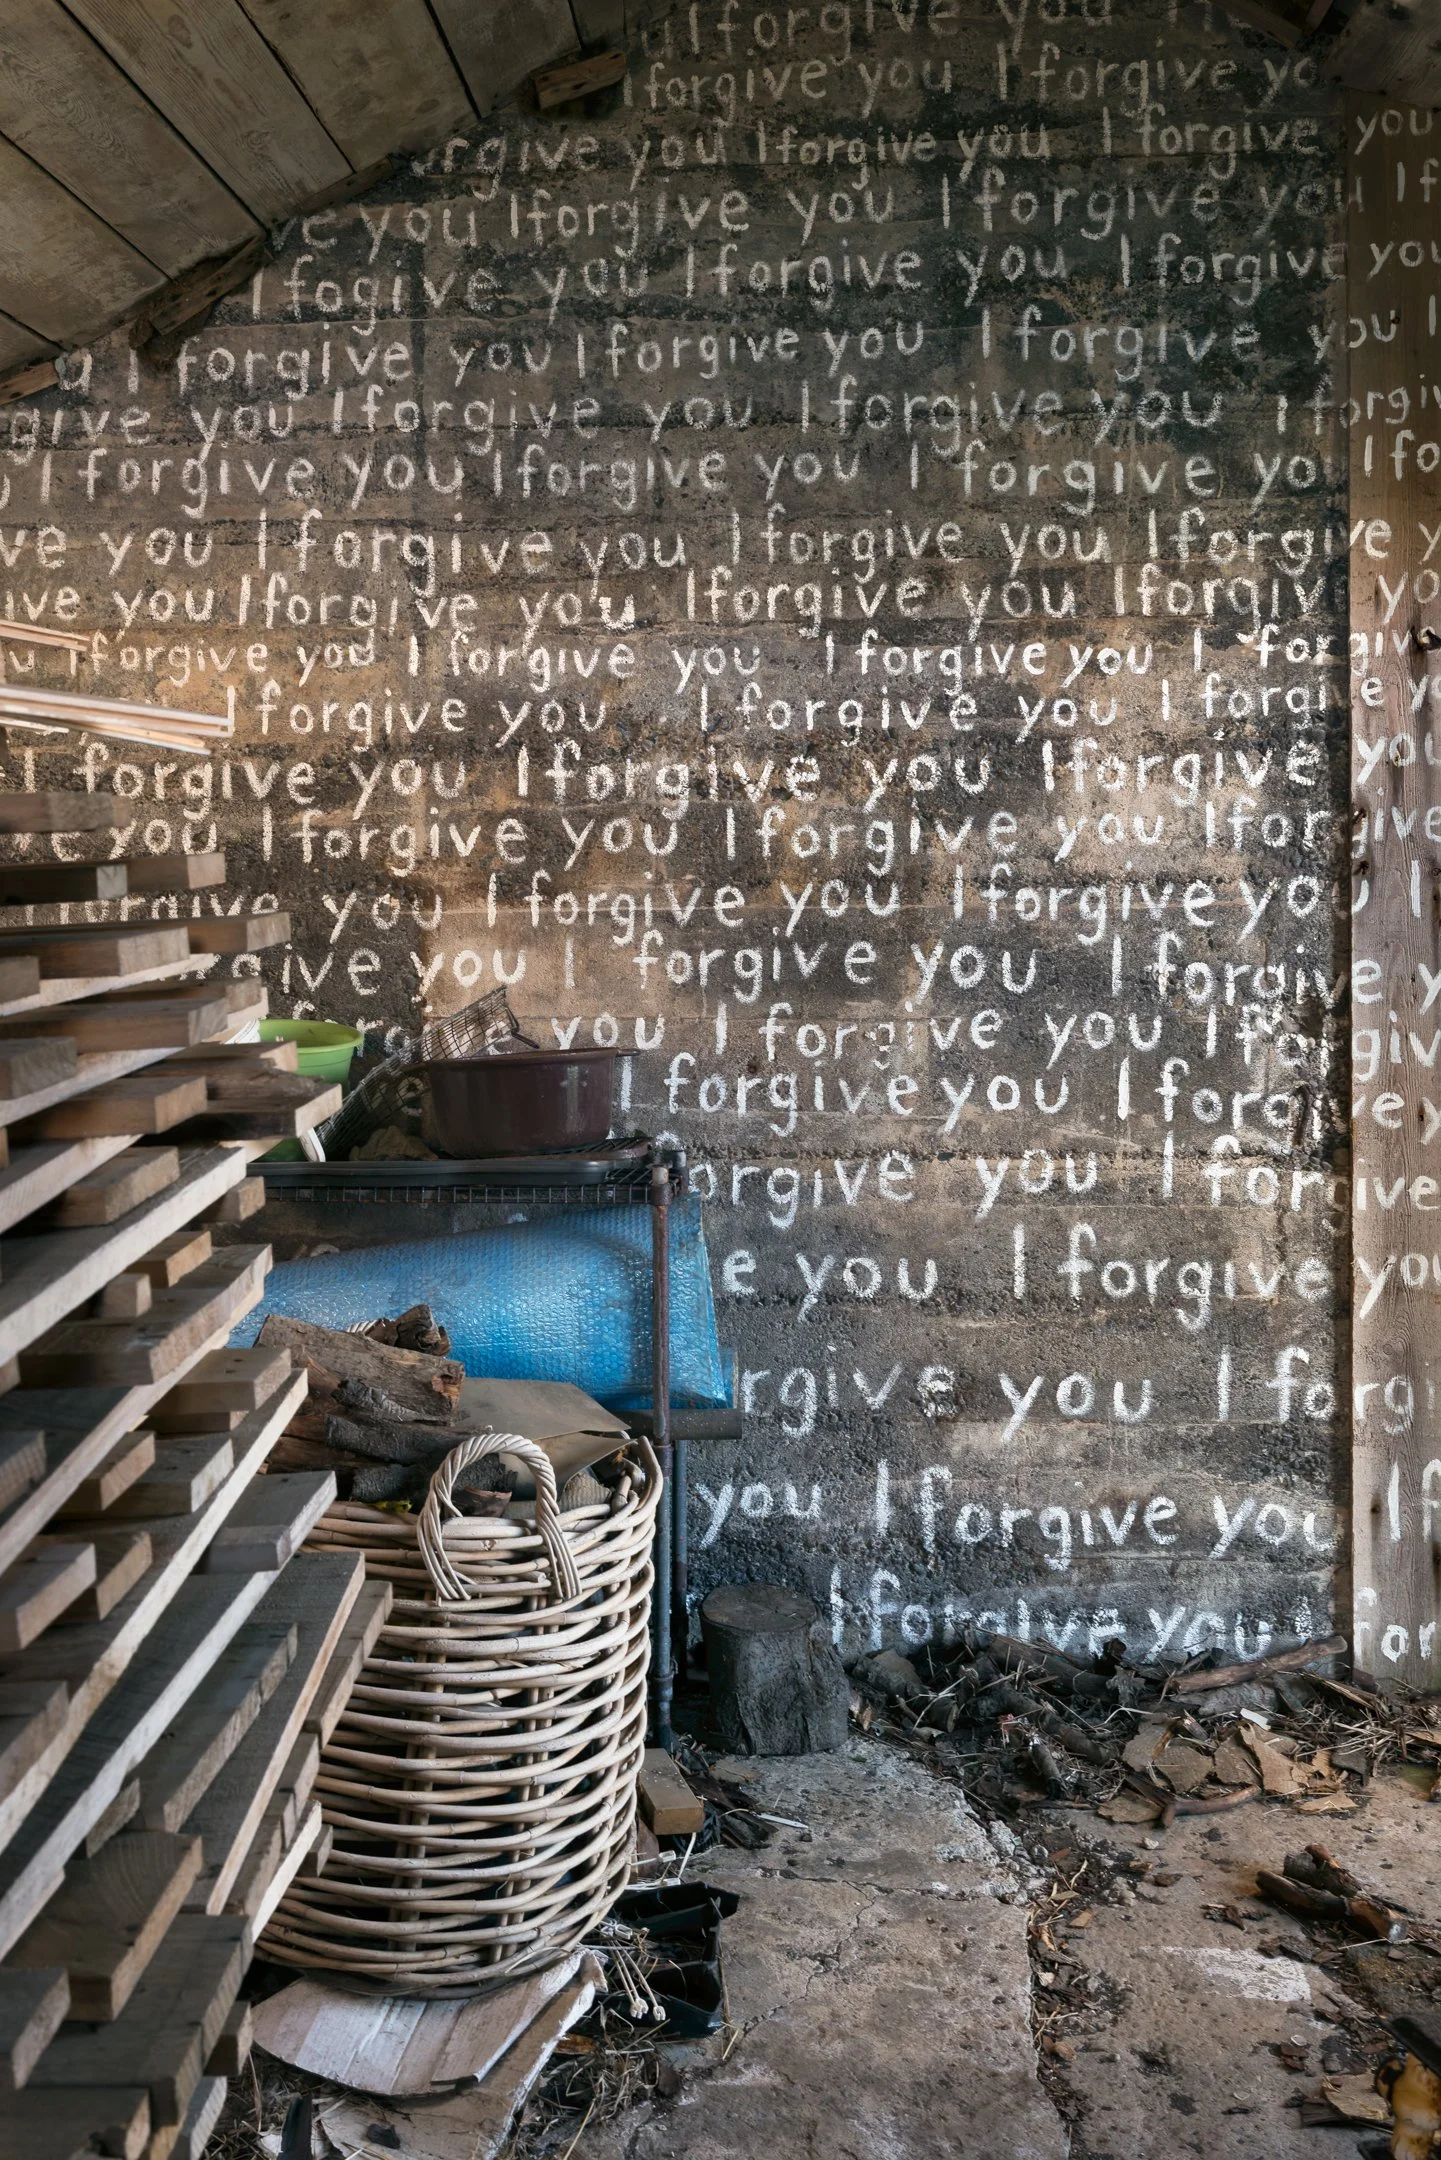 I forgive you
I forgive you I forgive yo
orgive you I forgive you I forgive you
ve you I forgive you I forgive you I f
I fogive you I forgive you I forgive you
u I forgive you I forgive you I forgive you I
give you I forgive you I forgive you I forgiv
u I forgive you I forgive you I forgive yo I fo
ve you I forgive you I forgive you I forgive y
ive you I forgive you I forgive you I forgiv yo
u I forgive you I forgive you I forgive you I forgiv
I forgive you I forgive you I forgive yo
I forgive you I forgive you I forgive you
ve you I forgive you I forgive you I forgive
I forgive you I forgive you I forgive you I
give you I forgive you I forgive y
forg you I forgive you I forgiv
ve I forgive you I forgive y
forgive you I forgive
e you I forgive you
rgive you I forg
you I forgive you I f
I forgive you I for